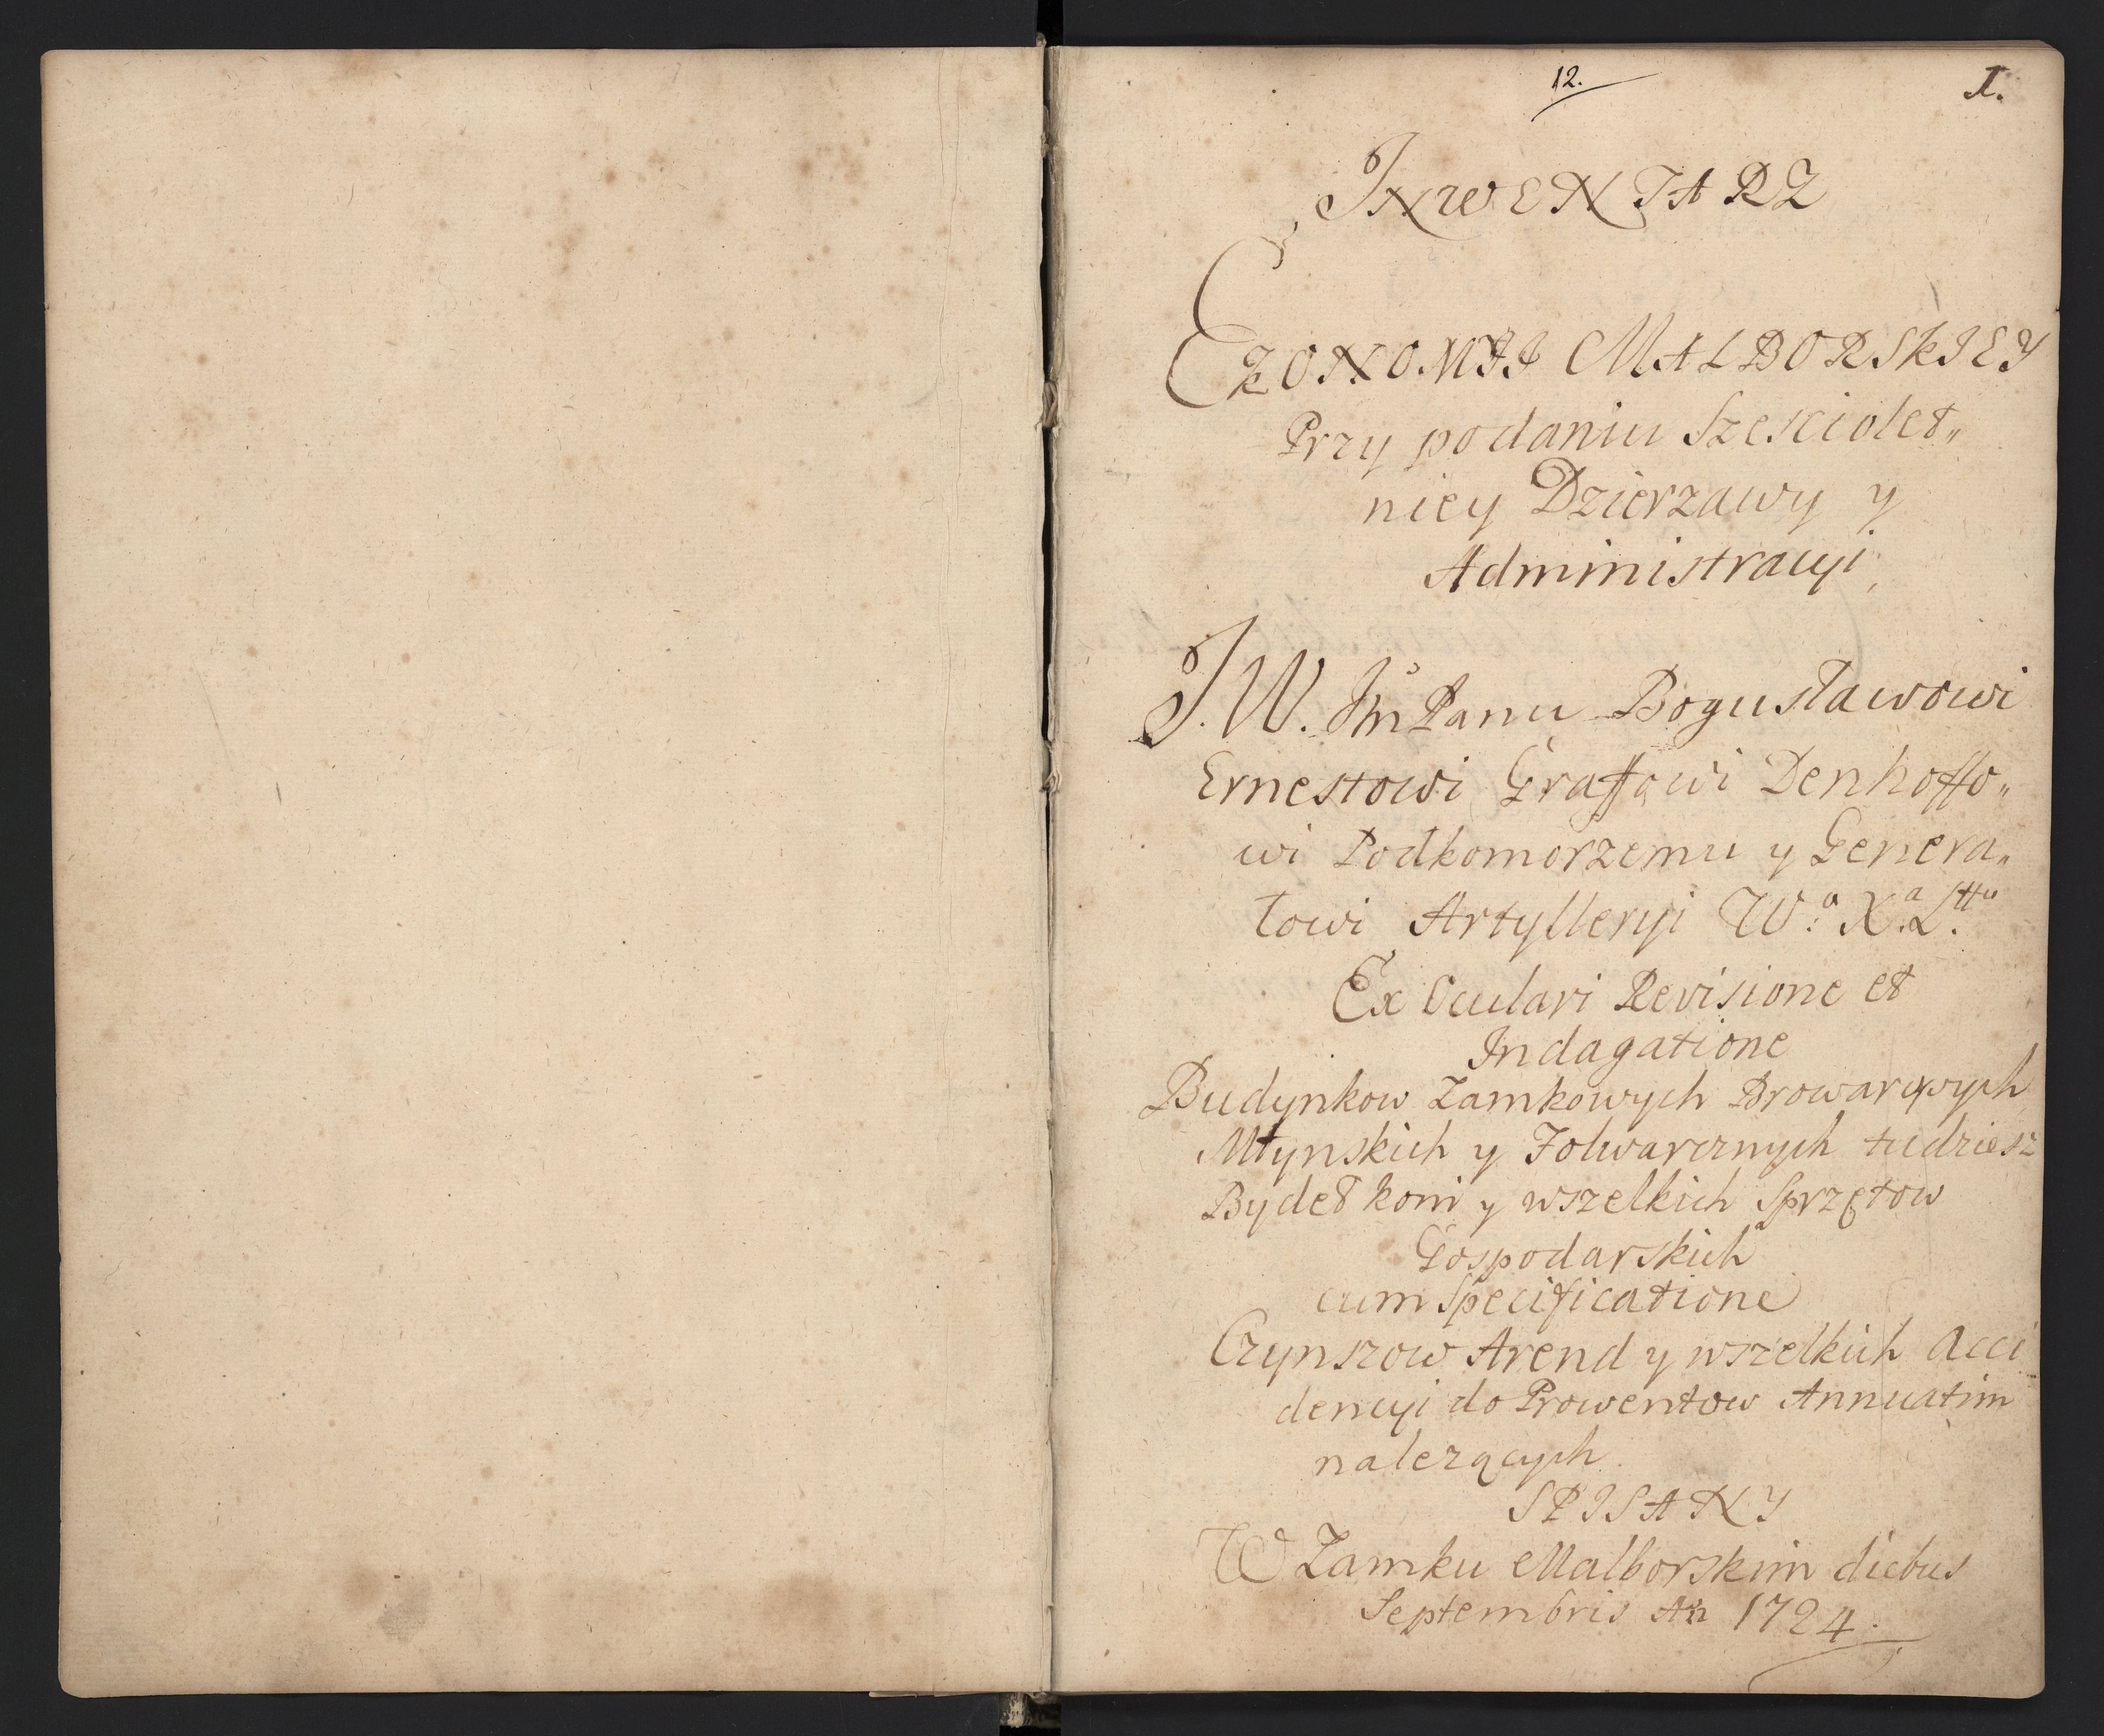 12.
I.
INWENTARZ
EKONOMII MALBORSKIEY
Przy podaniu Szesciolet„
niey Dzierzawy y
Administracyi
J. W. Jm Panu Bogusławowi
Ernestowi Graffowi Denhoffo„
wi Podkomorzemu y Genera„
łowi Artylleryi W.a X.a L.ttu
Ex Oculari Revisione et
Indagatione
Budynkow Zamkowych Browarowych
Młynskich y Folwarcznych tudziesz
Bydeł koni y wszelkich Sprzętow
Gospodarskich
cum Specificatione
Czynszow Arend y wszelkich Acci
dencyi do Prowentow Annuatim
nalezących
SPISANY
W Zamku Malborskim diebus
Septembris An 1724.